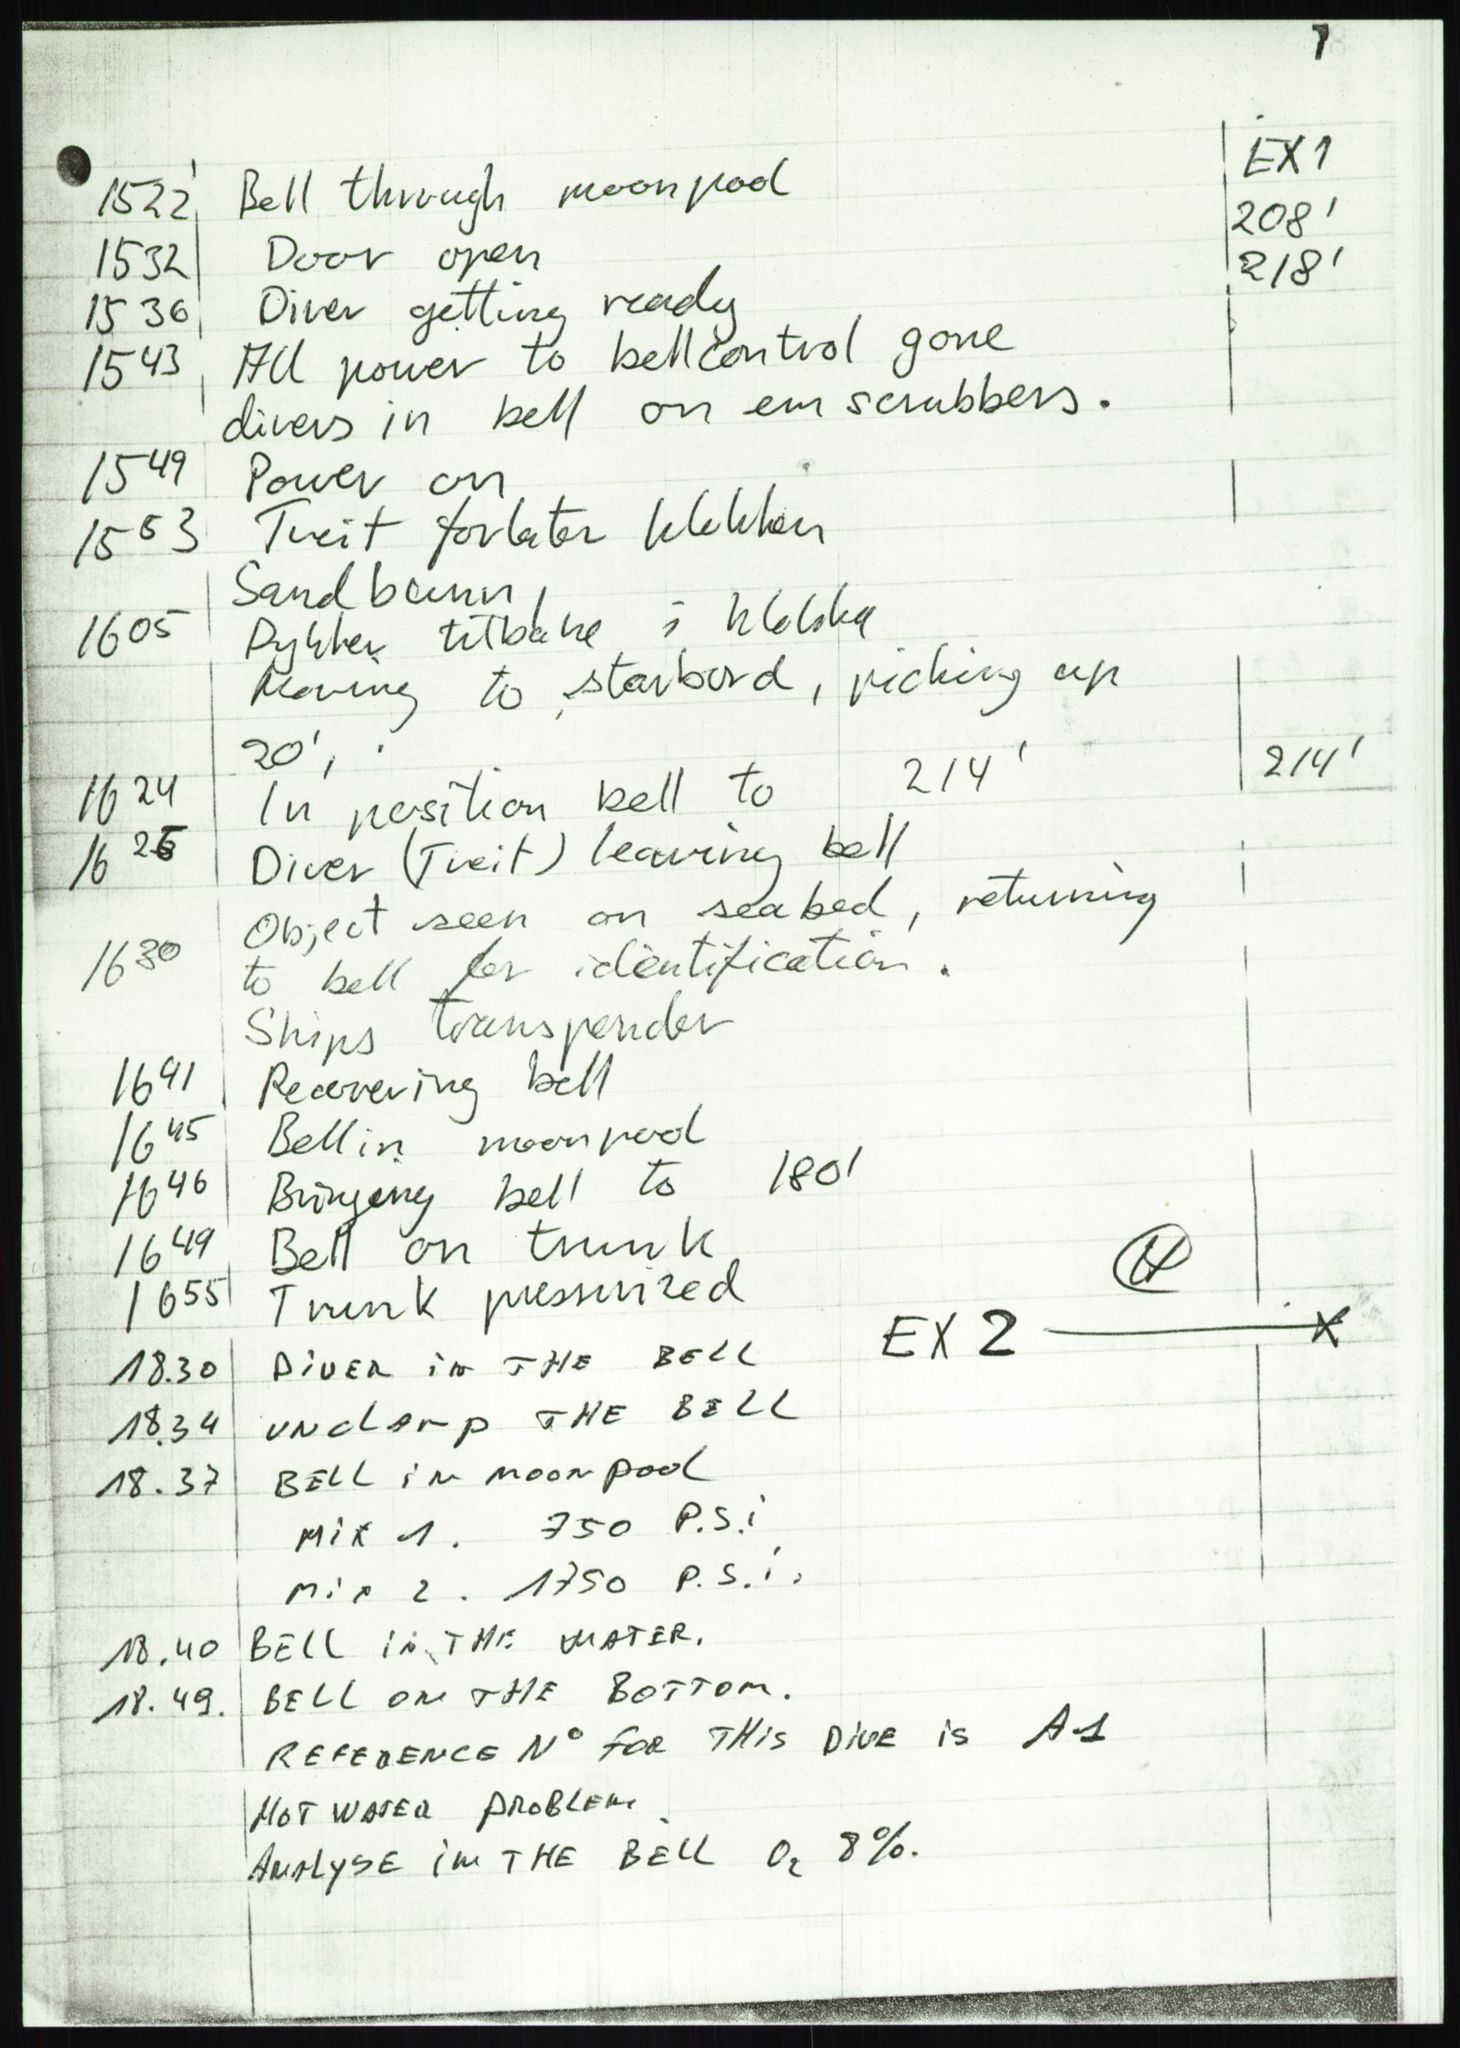 7
EX1
1522 Bell through moonpool 208'
1532 Door open 218'
1536 Diver getting ready
1543 All power to bellcontrol gone
divers in bell on em scrubbers.
1549 Power on
1553 Tveit forlater klokken
Sandbunn,
1605 Dykker tilbake i klokka
Moving to starbord, picking up
20',
1624 In position bell to 214' 214'
1625 Diver (Tveit) leaving bell
Object seen on seabed, returning
1630 to bell for identification.
Ships transponder
1641 Recovering bell
1645 Bell in moonpool
1646 Bringing bell to 180'
1649 Bell on trunk
1655 Trunk pressurized
EX 2 X
18.30 DIVER in THE BELL
18.34 UNclAmp THE BELL
18.37 BELL in moonpool
Mix 1. 750 P.S.i
Mix 2. 1750 P.S.i.
18.40 BELL in THE WATER.
18.49. BELL on THE BOTTOM.
REFERENCE N° FOR THIS DIVE is A-1
HOT WATER PROBLEM
ANALYSE in THE BELL O2 8%.